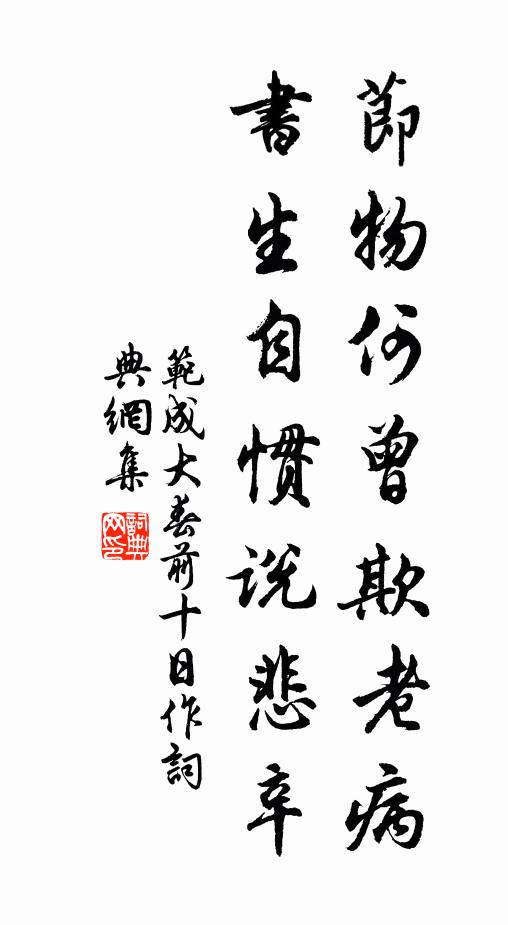 節物何曾欺老病
書生自慣說悲辛
範成大春前十日作詞
典網集
詞典
網印